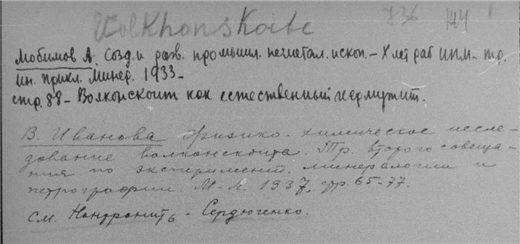 Volkhonskoite 736 144 1
Любимов А. Созд. и разв. промышл. неметал. ископ. – X лет раб ИПМ – тр.
ин. прикл. минер. 1933 –
стр. 88 – Волконскоит как естественный пермутит.
В. Иванова Физико-химическое иссле-
дование волконскоита. Тр. второго совеща-
ния по эксперимент. минералогии и
петрографии. М-Л. 1937, стр. 65-77.
См. Нонтронит – Сердюченко.